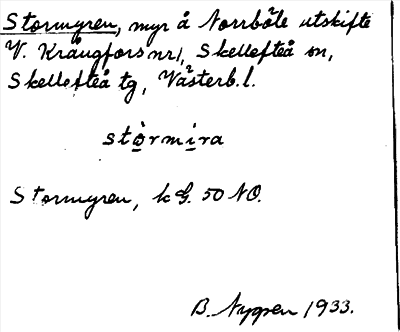 Stormyren, myr å Norrböle utskifte
V. Krångfors nr 1, Skellefteå sn,
Skellefteå tg, Västerb. l.
stòrmira
Stormyren, k G. 50 NO.
B. Nygren 1933.